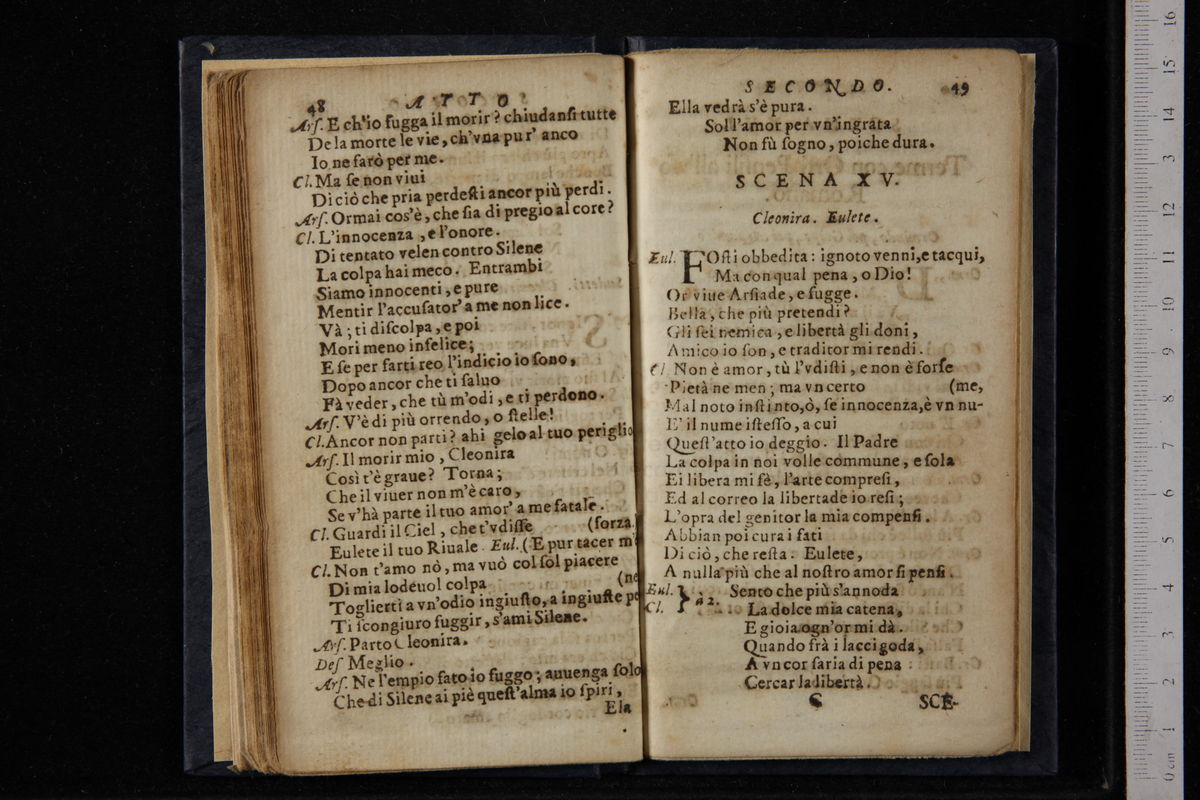 48 ATTO
Arſ. E ch'io fugga il morir? chiudanſi tutte
De la morte le vie, ch'vna pur' anco
Io ne farò per me.
Cl. Ma ſe non viui
Di ciò che pria perdeſti ancor più perdi.
Arſ. Ormai cos'è, che ſia di pregio al core?
Cl. L'innocenza, e l'onore.
Di tentato velen contro Silene
La colpa hai meco. Entrambi
Siamo innocenti, e pure
Mentir l'accuſator' a me non lice.
Và; ti diſcolpa, e poi
Mori meno infelice;
E ſe per farti reo l'indicio io ſono,
Dopo ancor che ti ſaluo
Fà veder, che tù m'odi, e ti perdono.
Arſ. V'è di più orrendo, o ſtelle!
Cl. Ancor non parti? ahi gelo al tuo periglio
Arſ. Il morir mio, Cleonira
Così t'è graue? Torna;
Che il viuer non m'è caro,
Se v'hà parte il tuo amor' a me fatale.
Cl. Guardi il Ciel, che t'vdiſſe (forza.
Eulete il tuo Riuale. Eul. (E pur tacer m'
Cl. Non t'amo nò, ma vuò col ſol piacere
Di mia lodeuol colpa (ne
Toglierti a vn'odio ingiuſto, a ingiuſte pe
Ti ſcongiuro fuggir, s'ami Silene.
Arſ. Parto Cleonira.
Deſ Meglio.
Arſ. Ne l'empio fato io fuggo; auuenga ſolo
Che di Silene ai piè queſt'alma io ſpiri,
Ela
SECONDO. 49
Ella vedrà s'è pura.
Sol l'amor per vn'ingrata
Non fù ſogno, poiche dura.
SCENA XV.
Cleonira. Eulete.
Eul. FOſti obbedita: ignoto venni, e tacqui,
Ma con qual pena, o Dio!
Or viue Arſiade, e fugge.
Bella, che più pretendi?
Gli ſei nemica, e libertà gli doni,
Amico io ſon, e traditor mi rendi.
Cl Non è amor, tù l'vdiſti, e non è forſe
Pietà ne men; ma vn certo (me,
Mal noto inſtinto, ò, ſe innocenza, è vn nu-
E' il nume iſteſſo, a cui
Queſt'atto io deggio. Il Padre
La colpa in noi volle commune, e ſola
Ei libera mi fè, l'arte compreſi,
Ed al correo la libertade io reſi;
L'opra del genitor la mia compenſi.
Abbian poi cura i fati
Di ciò, che reſta. Eulete,
A nulla più che al noſtro amor ſi penſi.
Eul. } a 2. Sento che più s'annoda
Cl. La dolce mia catena,
E gioia ogn'or mi dà.
Quando frà i lacci goda,
A vn cor ſaria di pena
Cercar la libertà.
C SCE-
0 cm 1 2 3 4 5 6 7 8 9 10 11 12 13 14 15 16